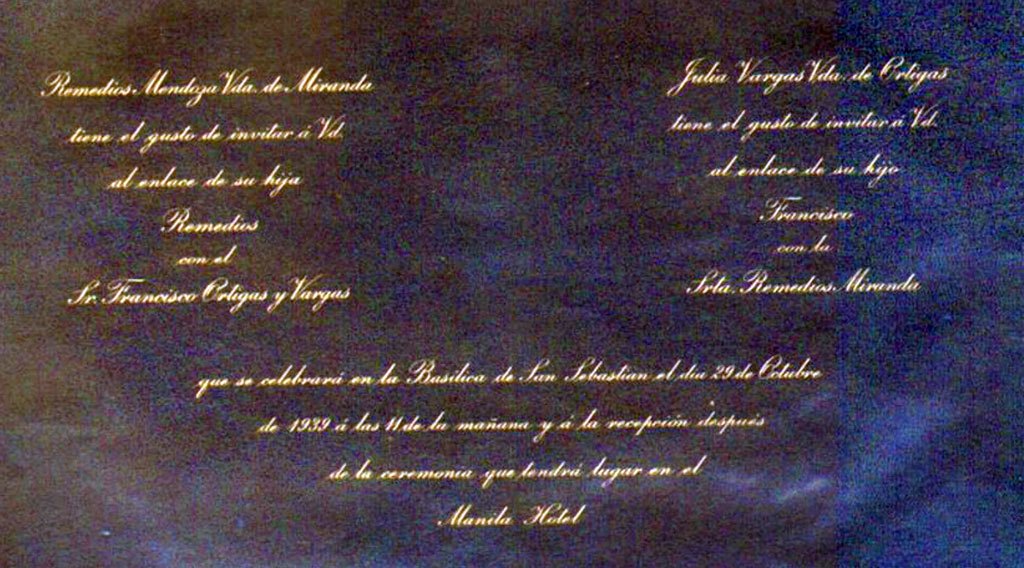 Remedios Mendoza Vda. de Miranda
tiene el gusto de invitar á Vd.
al enlace de su hija
Remedios
con el
Sr. Francisco Ortigas y Vargas
Julia Vargas Vda. de Ortigas
tiene el gusto de invitar á Vd.
al enlace de su hijo
Francisco
con la
Srta. Remedios Miranda
que se celebrará en la Basilica de San Sebastian el dia 29 de Octubre
de 1939 á las 11 de la mañana y á la recepción después
de la ceremonia que tendrá lugar en el
Manila Hotel